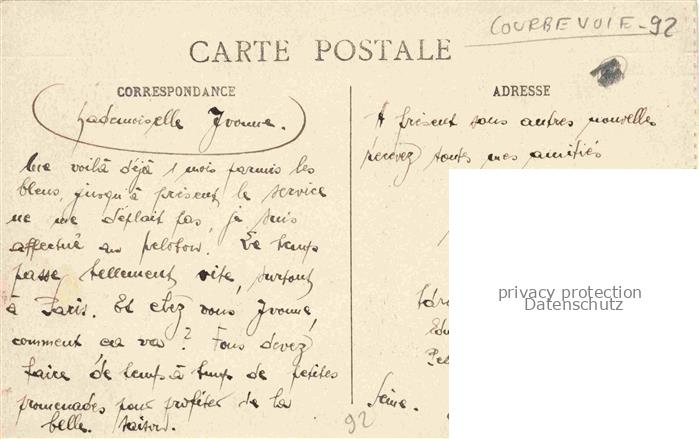 COURBEVOIE - 92
CARTE POSTALE
CORRESPONDANCE
ADRESSE
Mademoiselle Yvonne.
Me voilà déjà 1 mois parmis les
bleus, jusqu'à présent le service
ne me déplait pas, je suis
affectué au peloton. Le temps
passe tellement vite, surtout
à Paris. Et chez vous Yvonne,
comment ca va ? Vous devez
faire de temps à temps de petites
promenades pour profiter de la
belle saison.
92
A présent sans autres nouvelles
recevez toutes mes amitiés
Seine.
privacy protection
Datenschutz